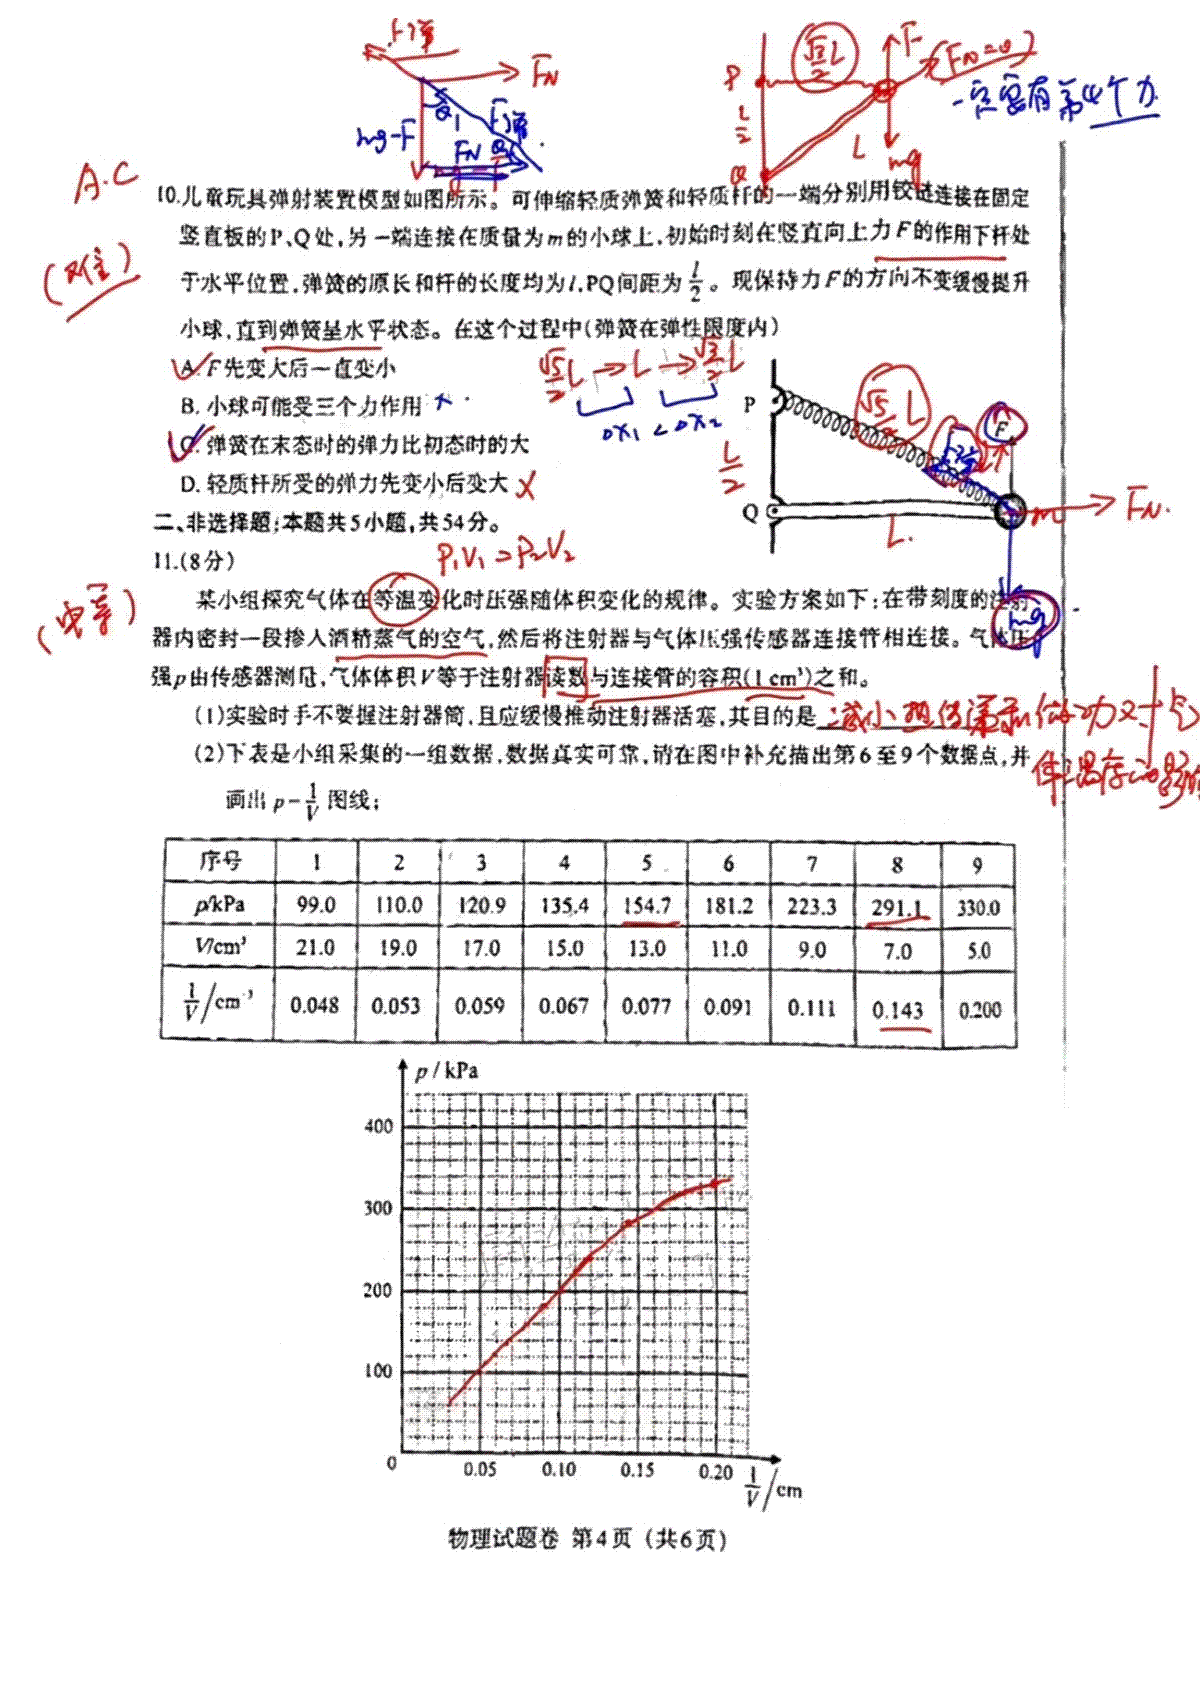 F弹
FN
mg-F
θ
F弹
FN
P
√3/2 L
F
(FN=0)
一定要有第4个力
L/2
Q
L
mg
A.C
(难)
10.儿童玩具弹射装置模型如图所示。可伸缩轻质弹簧和轻质杆的一端分别用铰链连接在固定
竖直板的P、Q处,另一端连接在质量为m的小球上,初始时刻在竖直向上力F的作用下杆处
于水平位置,弹簧的原长和杆的长度均为l,PQ间距为l/2。现保持力F的方向不变缓慢提升
小球,直到弹簧呈水平状态。在这个过程中(弹簧在弹性限度内)
A. F先变大后一直变小
B. 小球可能受三个力作用 ×
C. 弹簧在末态时的弹力比初态时的大
D. 轻质杆所受的弹力先变小后变大 ×
√5/2 L → L → √3/2 L
Δx₁ < Δx₂
P
√5/2 L
F
L/2
Q
L
m
FN
mg
二、非选择题:本题共5小题,共54分。
11.(8分)
P₁V₁=P₂V₂
某小组探究气体在等温变化时压强随体积变化的规律。实验方案如下:在带刻度的注射
器内密封一段掺入酒精蒸气的空气,然后将注射器与气体压强传感器连接管相连接。气体压
强p由传感器测量,气体体积V等于注射器读数与连接管的容积(1 cm³)之和。
(1)实验时手不要握注射器筒,且应缓慢推动注射器活塞,其目的是
(2)下表是小组采集的一组数据,数据真实可靠,请在图中补充描出第6至9个数据点,并
画出 p-1/V 图线;
序号 1 2 3 4 5 6 7 8 9
p/kPa 99.0 110.0 120.9 135.4 154.7 181.2 223.3 291.1 330.0
V/cm³ 21.0 19.0 17.0 15.0 13.0 11.0 9.0 7.0 5.0
1/V/cm⁻³ 0.048 0.053 0.059 0.067 0.077 0.091 0.111 0.143 0.200
p / kPa
400
300
200
100
0 0.05 0.10 0.15 0.20 1/V/cm
物理试题卷 第4页(共6页)